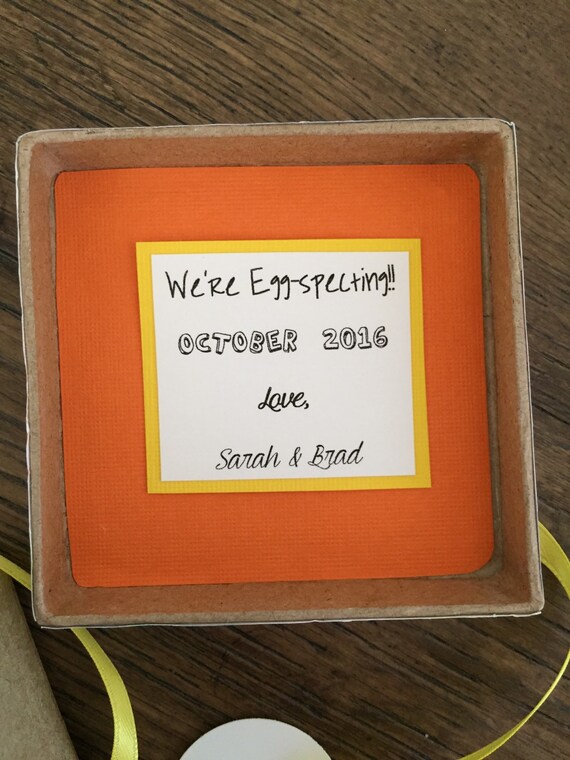 We're Egg-specting!!
OCTOBER 2016
Love,
Sarah & Brad